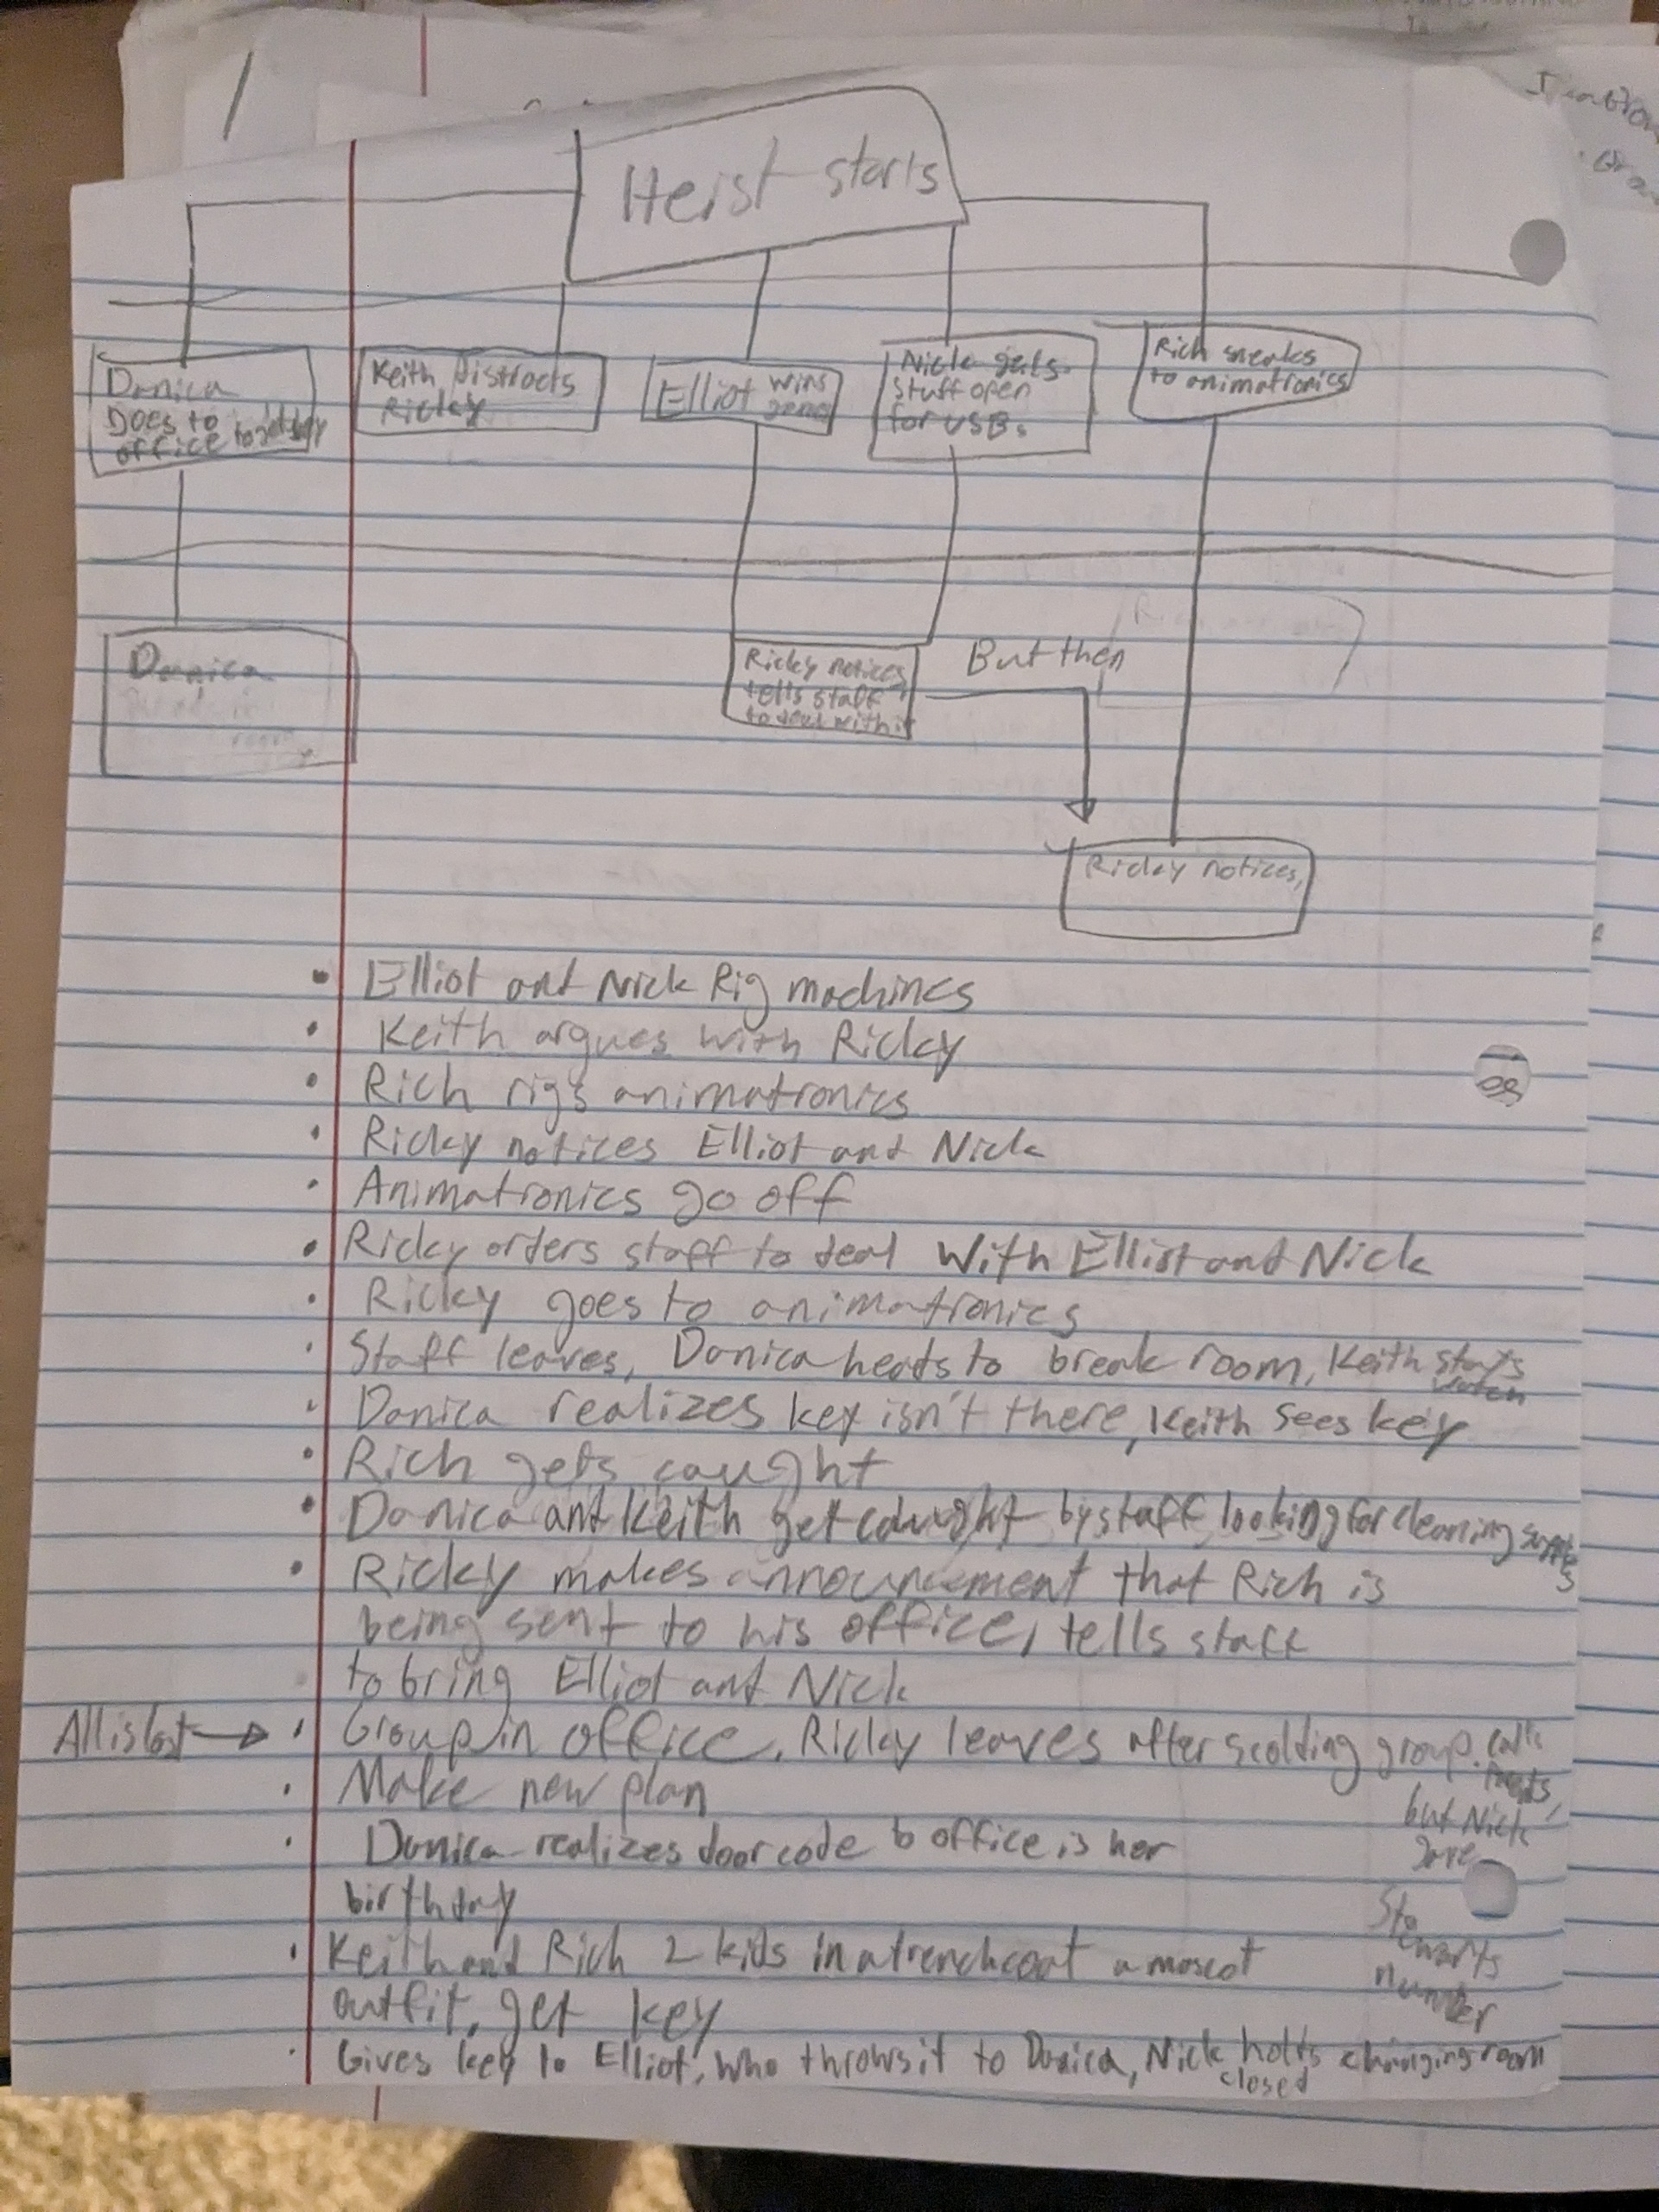 Heist starts
Danica
Does to
office to get key
Keith Distracts
Ricky
Elliot wins
game
Nick gets
stuff open
for USBs
Rich sneaks
to animatronics
Danica
Ricky notices,
tells staff
to deal with it
But then
Ricky notices,
• Elliot and Nick Rig machines
• Keith argues with Ricky
• Rich rigs animatronics
• Ricky notices Elliot and Nick
• Animatronics go off
• Ricky orders staff to deal With Elliot and Nick
• Ricky goes to animatronics
• Staff leaves, Danica heads to break room, Keith stays
watch
• Danica realizes key isn't there, Keith sees key
• Rich gets caught
• Danica and Keith get caught by staff looking for cleaning supplies
• Ricky makes announcement that Rich is
being sent to his office, tells staff
to bring Elliot and Nick
All is lost → • Group in office. Ricky leaves after scolding group. calls
Parents,
but Nick
gave
Stewarts
number
• Make new plan
• Danica realizes door code to office is her
birthday
• Keith and Rich 2 kids in a trenchcoat a mascot
outfit, get key
• Gives key to Elliot, who throws it to Danica, Nick holds changing room
closed